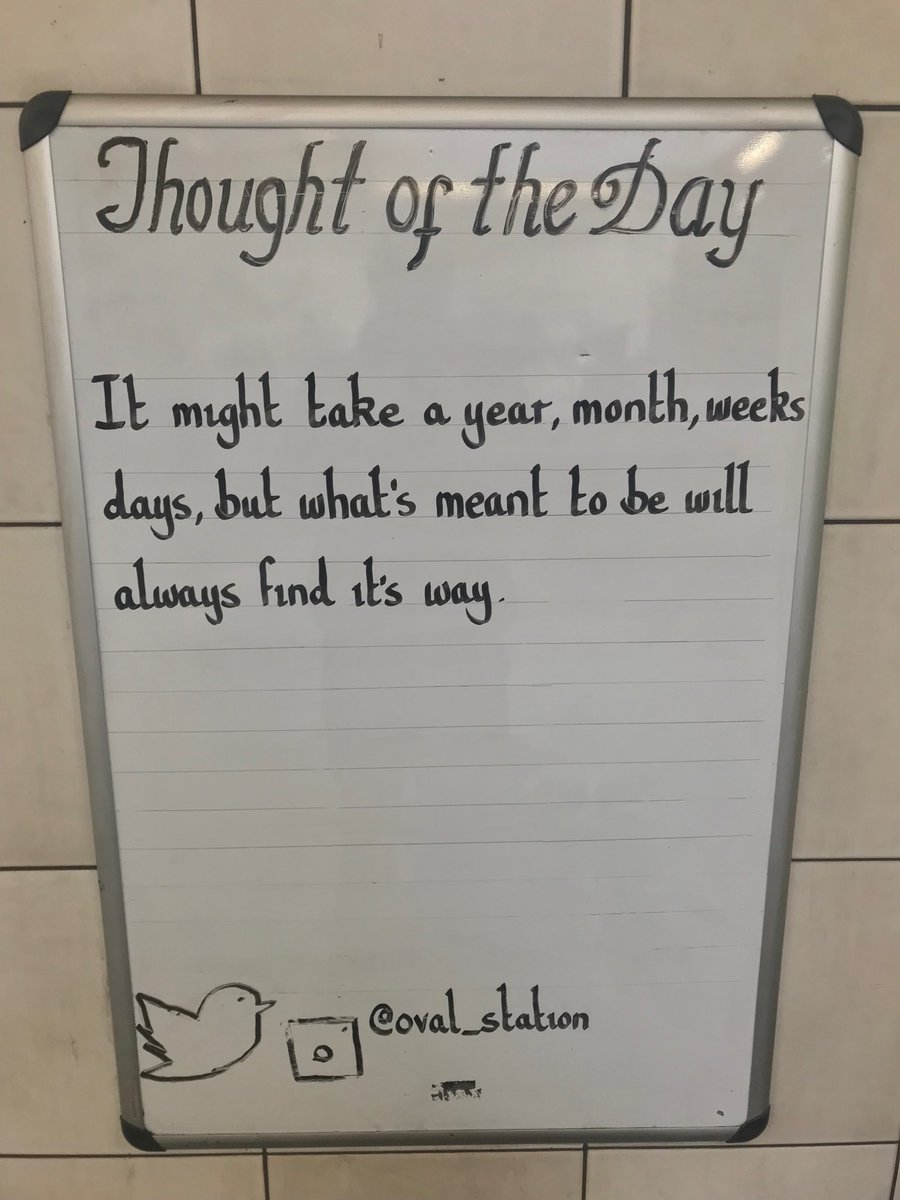 Thought of the Day
It might take a year, month, weeks
days, but what's meant to be will
always find it's way.
@oval_station